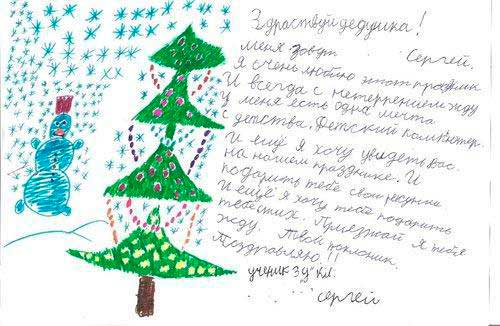 Здраствуй дедушка!
меня зовут Сергей.
Я очень люблю этот праздник
И всегда с нетерпением жду
У меня есть одна мечта
с детства. Детский компьютер.
И ещё я хочу увидеть вас.
на нашем празднике. И
подарить тебе свои рисунки
И ещё я хочу тебе подарить
тебе стих. Приезжай я тебя
жду. Твой поклоник.
Поздравляю!!
ученик 3 "д" кл.
Сергей